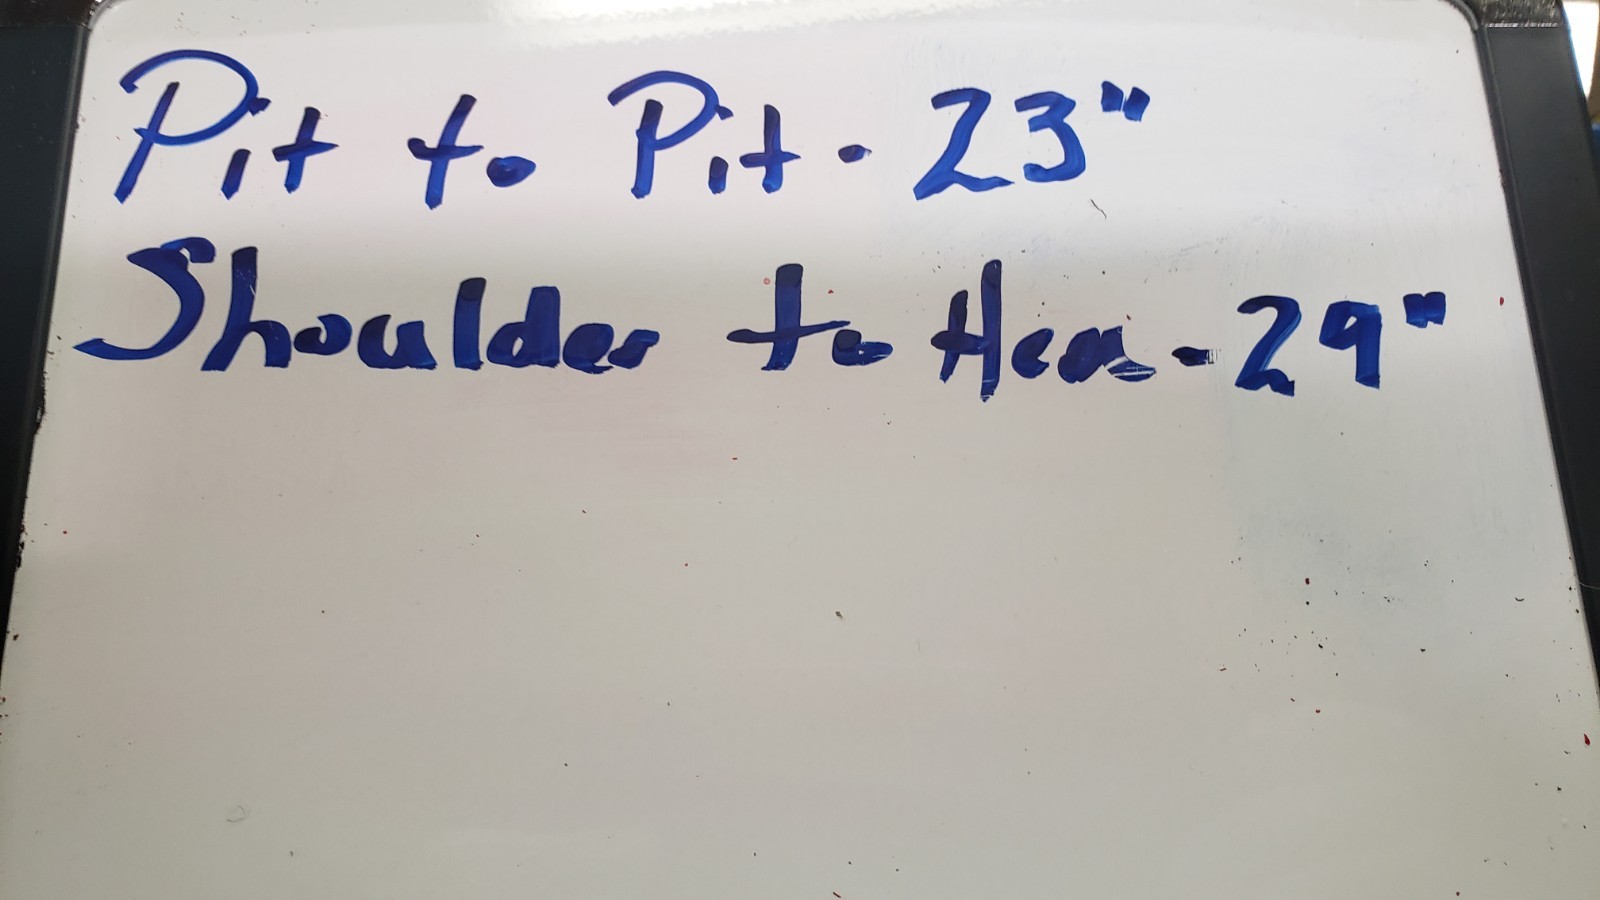 Pit to Pit - 23"
Shoulder to Hem - 29"